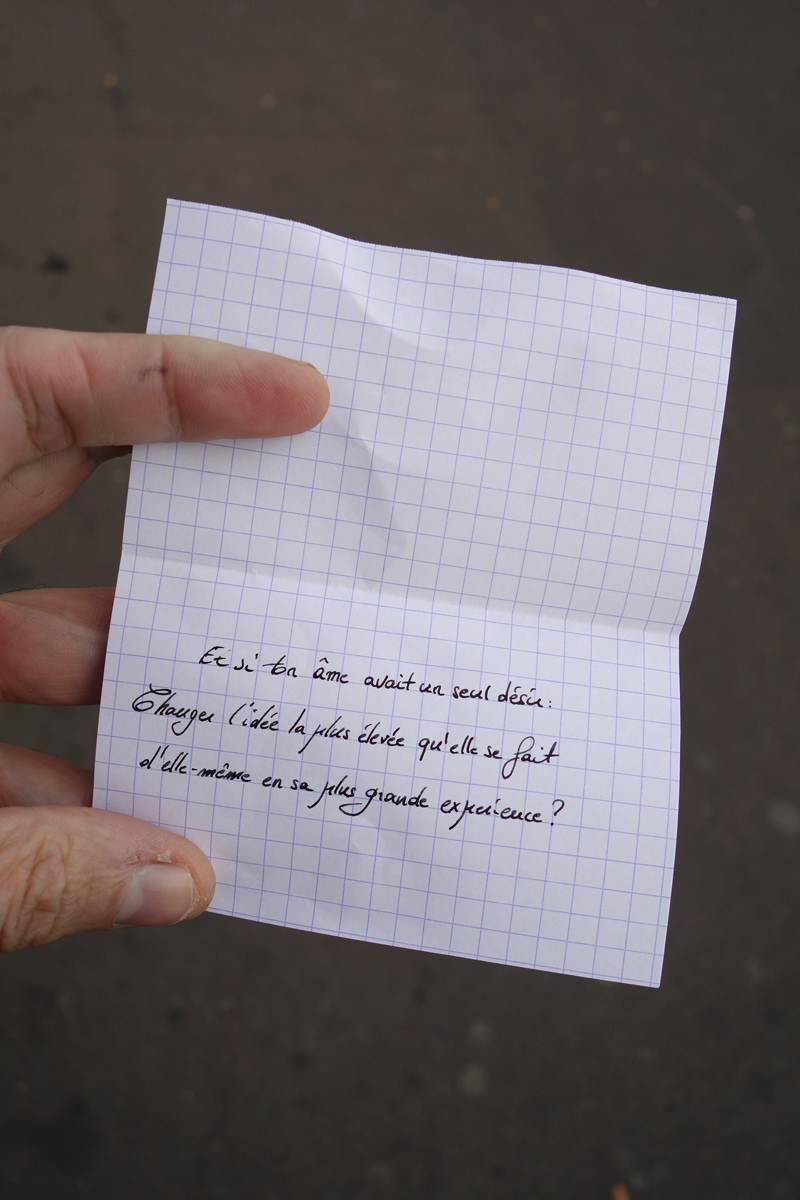 Et si ton âme avait un seul désir :
Changer l'idée la plus élevée qu'elle se fait
d'elle-même en sa plus grande expérience ?